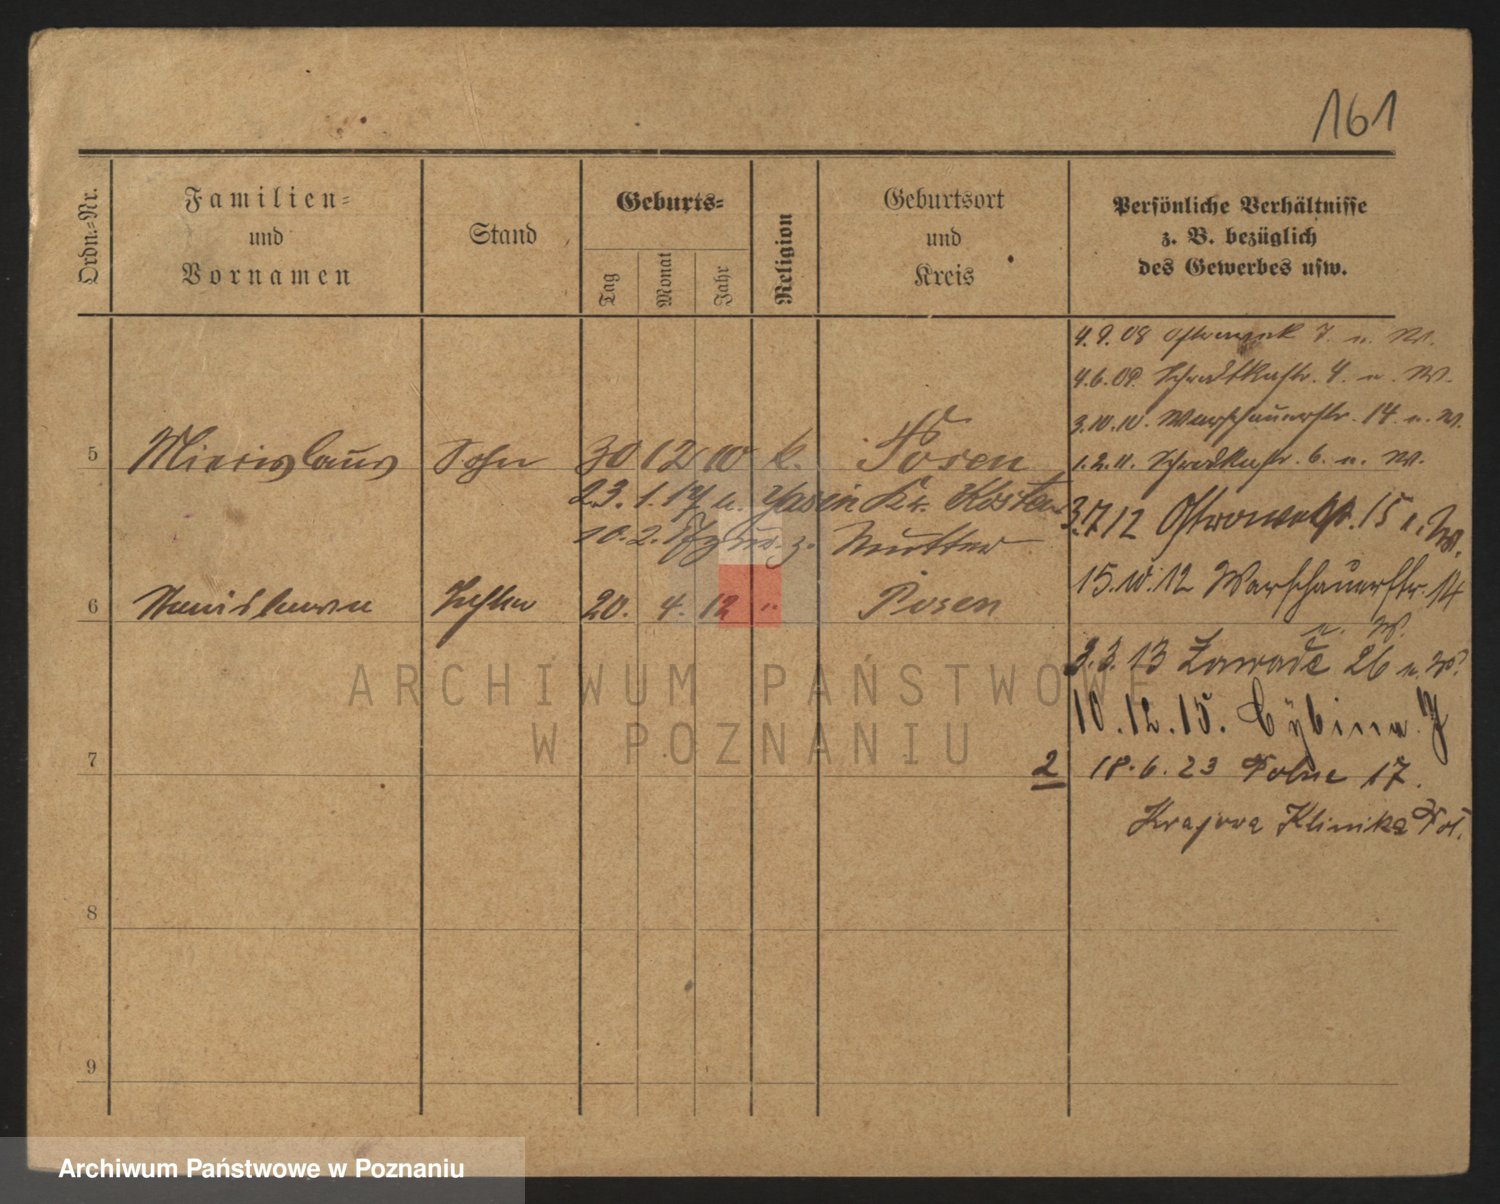 161
Ordn.-Nr.
Familien-
und
Vornamen
Stand
Geburts-
Tag
Monat
Jahr
Religion
Geburtsort
und
Kreis
Persönliche Verhältnisse
z. B. bezüglich
des Gewerbes usw.
4.9.08 Ostrowek 7 u. W.
4.6.09. Schrodkastr. 4. u. W.
3.10.10. Warschauerstr. 14 u. W.
1.2.11. Schrodkastr. 6. u. W.
5 Miecislaus Sohn 30 12 10 k. Posen
23. 1. 17 n. Kr. Kosten
3.7.12 Ostrowekstr. 15 u. W.
10. 2. 17 z. Mutter
15.10.12 Warschauerstr. 14
u. W.
6 Stanislawa Tochter 20. 4. 12 " Posen
3.3.13 Zawade 26 u. W.
10.12.15. Cybina 7
7
2 18.6.23 Polna 17.
Krajowa Klinika Poł.
8
9
ARCHIWUM PAŃSTWOWE
W POZNANIU
Archiwum Państwowe w Poznaniu